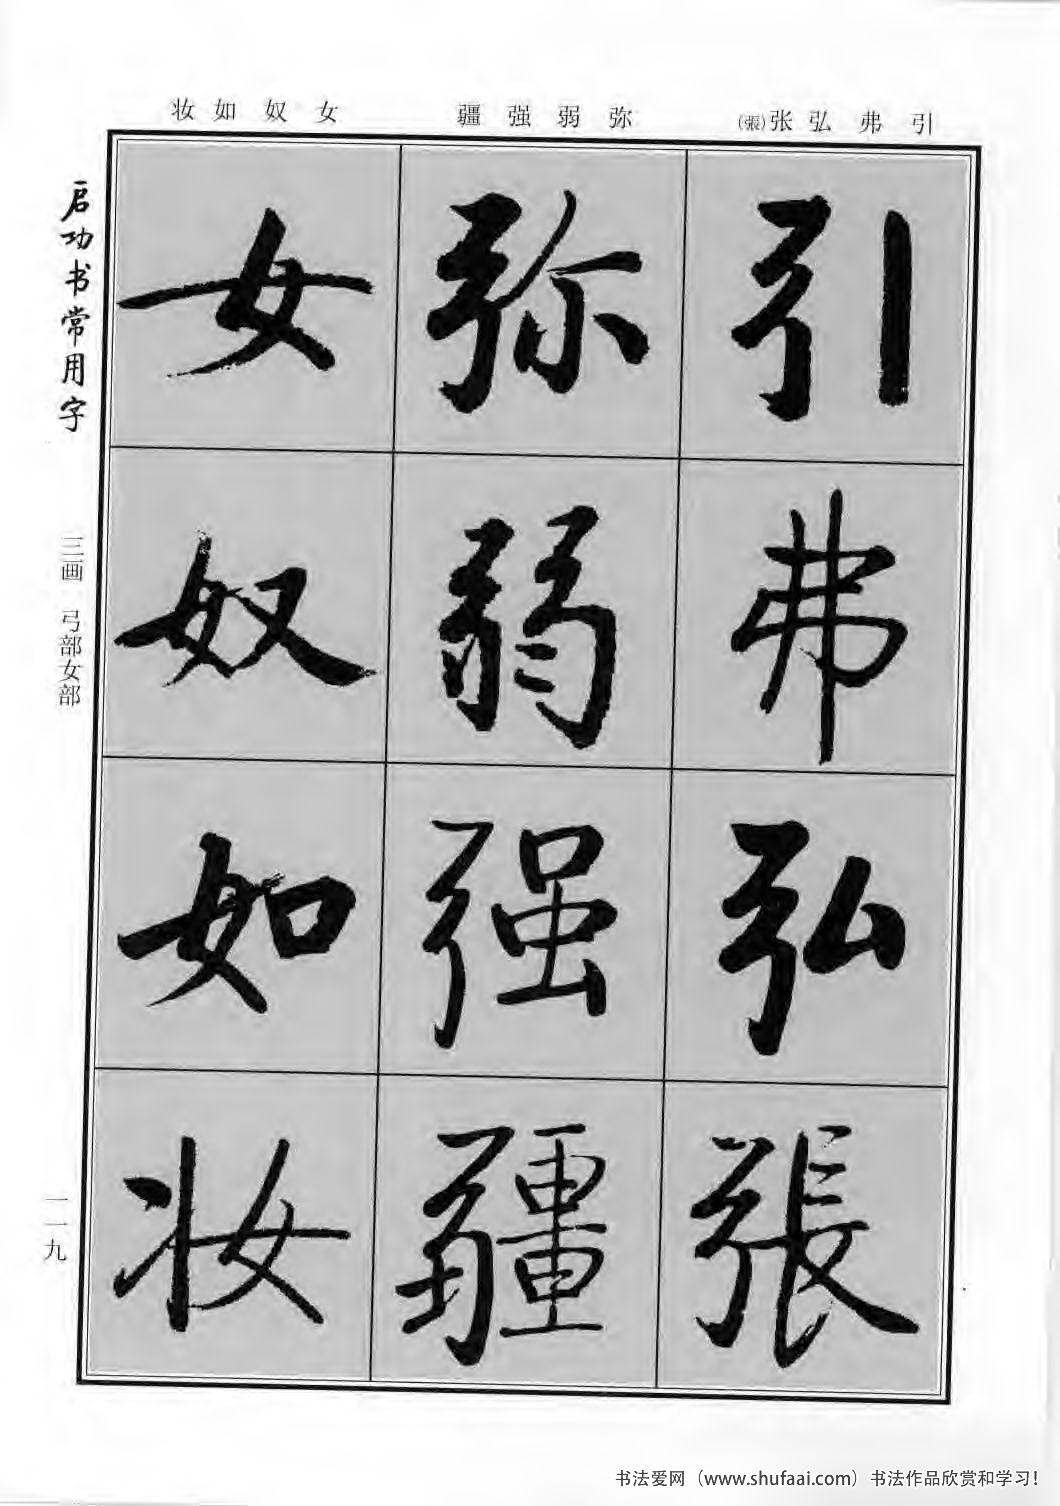 引 弗 弘 张(張)
弥 弱 强 疆
女 奴 如 妆
引
弗
弘
張
弥
弱
强
疆
女
奴
如
妆
启功书常用字
三画 弓部女部
一一九
书法爱网（www.shufaai.com）书法作品欣赏和学习!